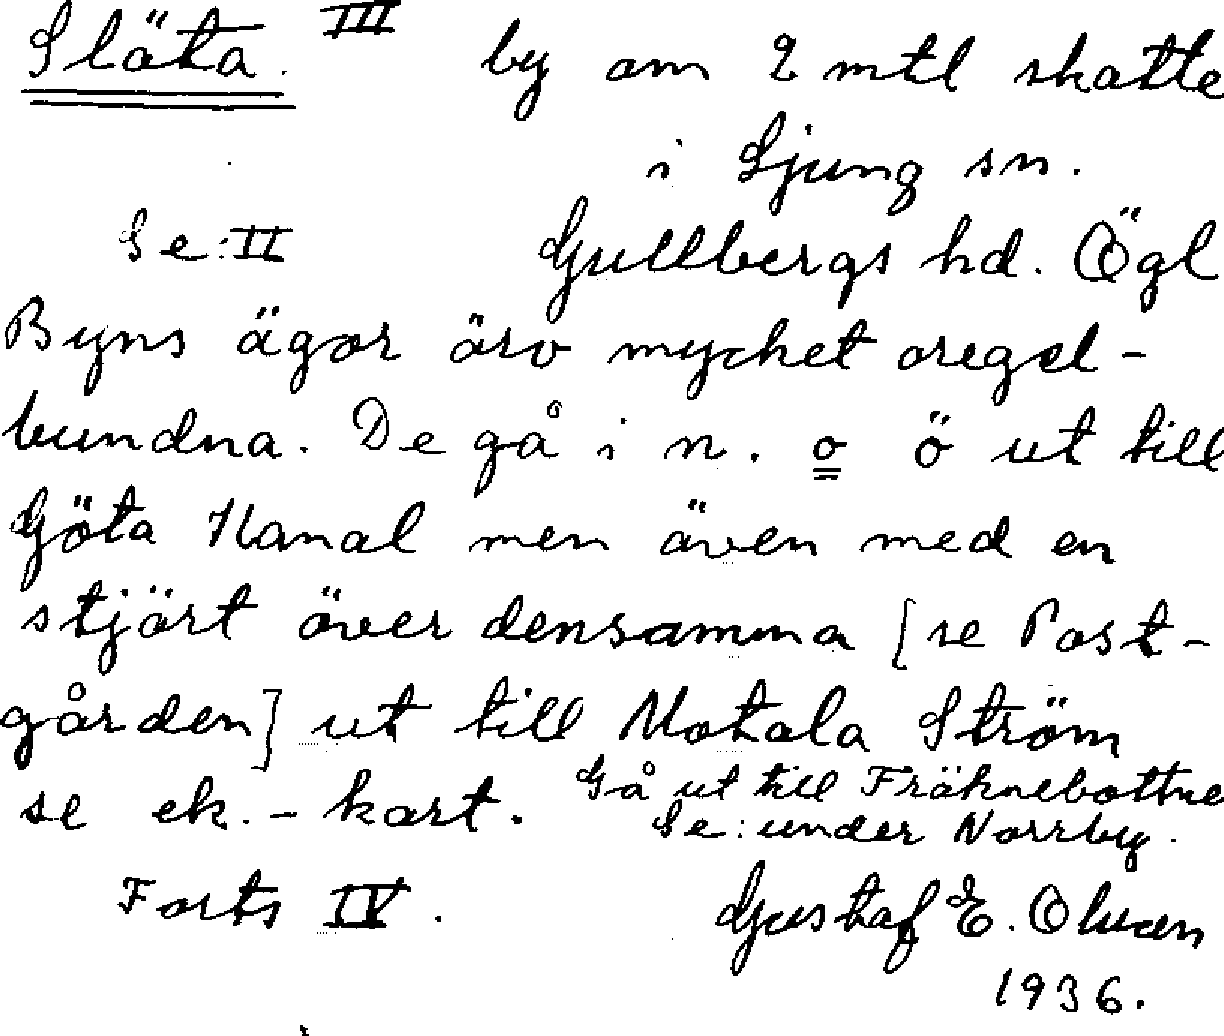 Släta. III by om 2 mtl skatte
i Ljung sn.
Se: II Gullbergs hd. Ögl
Byns ägor äro mycket oregel-
bundna. De gå i n. o ö ut till
Göta Kanal men även med en
stjärt över densamma [se Post-
gården] ut till Motala Ström
se ek. - kart. Gå ut till Fräknebottne
Se: under Norrby.
Forts IV. Gustaf E. Olsson
1936.